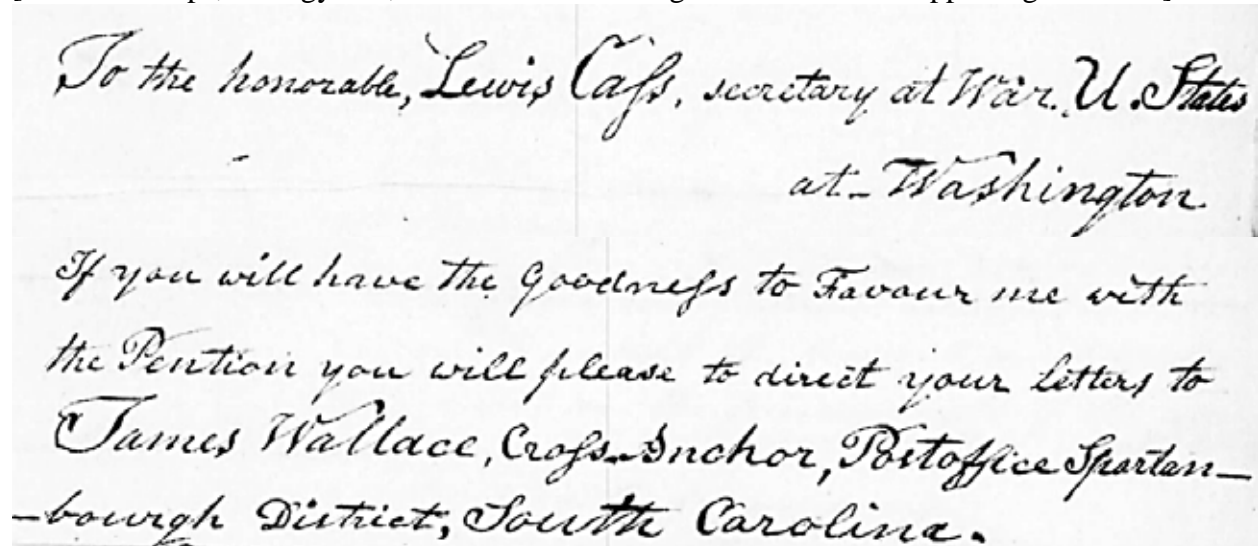 To the honorable, Lewis Cass, secretary at War. U. States
at Washington.
If you will have the Goodness to Favour me with
the Pention you will please to direct your letters to
James Wallace, Cross-Anchor, Postoffice Spartan-
-bourgh District, South Carolina.